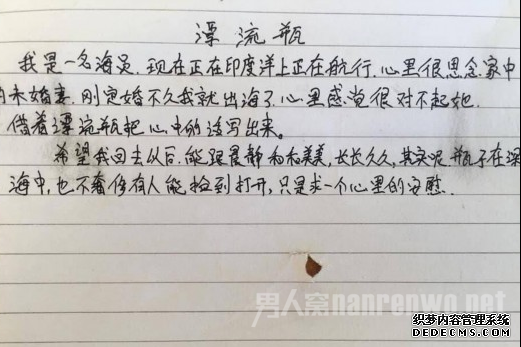 漂流瓶
我是一名海员.现在正在印度洋上正在航行.心里很思念家中
的未婚妻.刚定婚不久我就出海了.心里感觉很对不起她.
借着漂流瓶把心中的话写出来。
希望我回去以后,能跟晨静和和美美,长长久久,其实呢瓶子在深
海中,也不奢侈有人能捡到打开,只是求一个心里的安慰.
男人窝nanrenwo.net
织梦内容管理系统
DEDECMS.COM